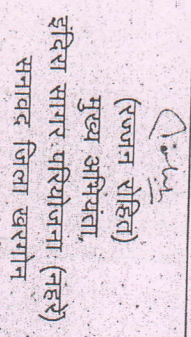 (रज्जन रोहित)
मुख्य अभियंता,
इंदिरा सागर परियोजना (नहरें)
सनावद जिला खरगोन